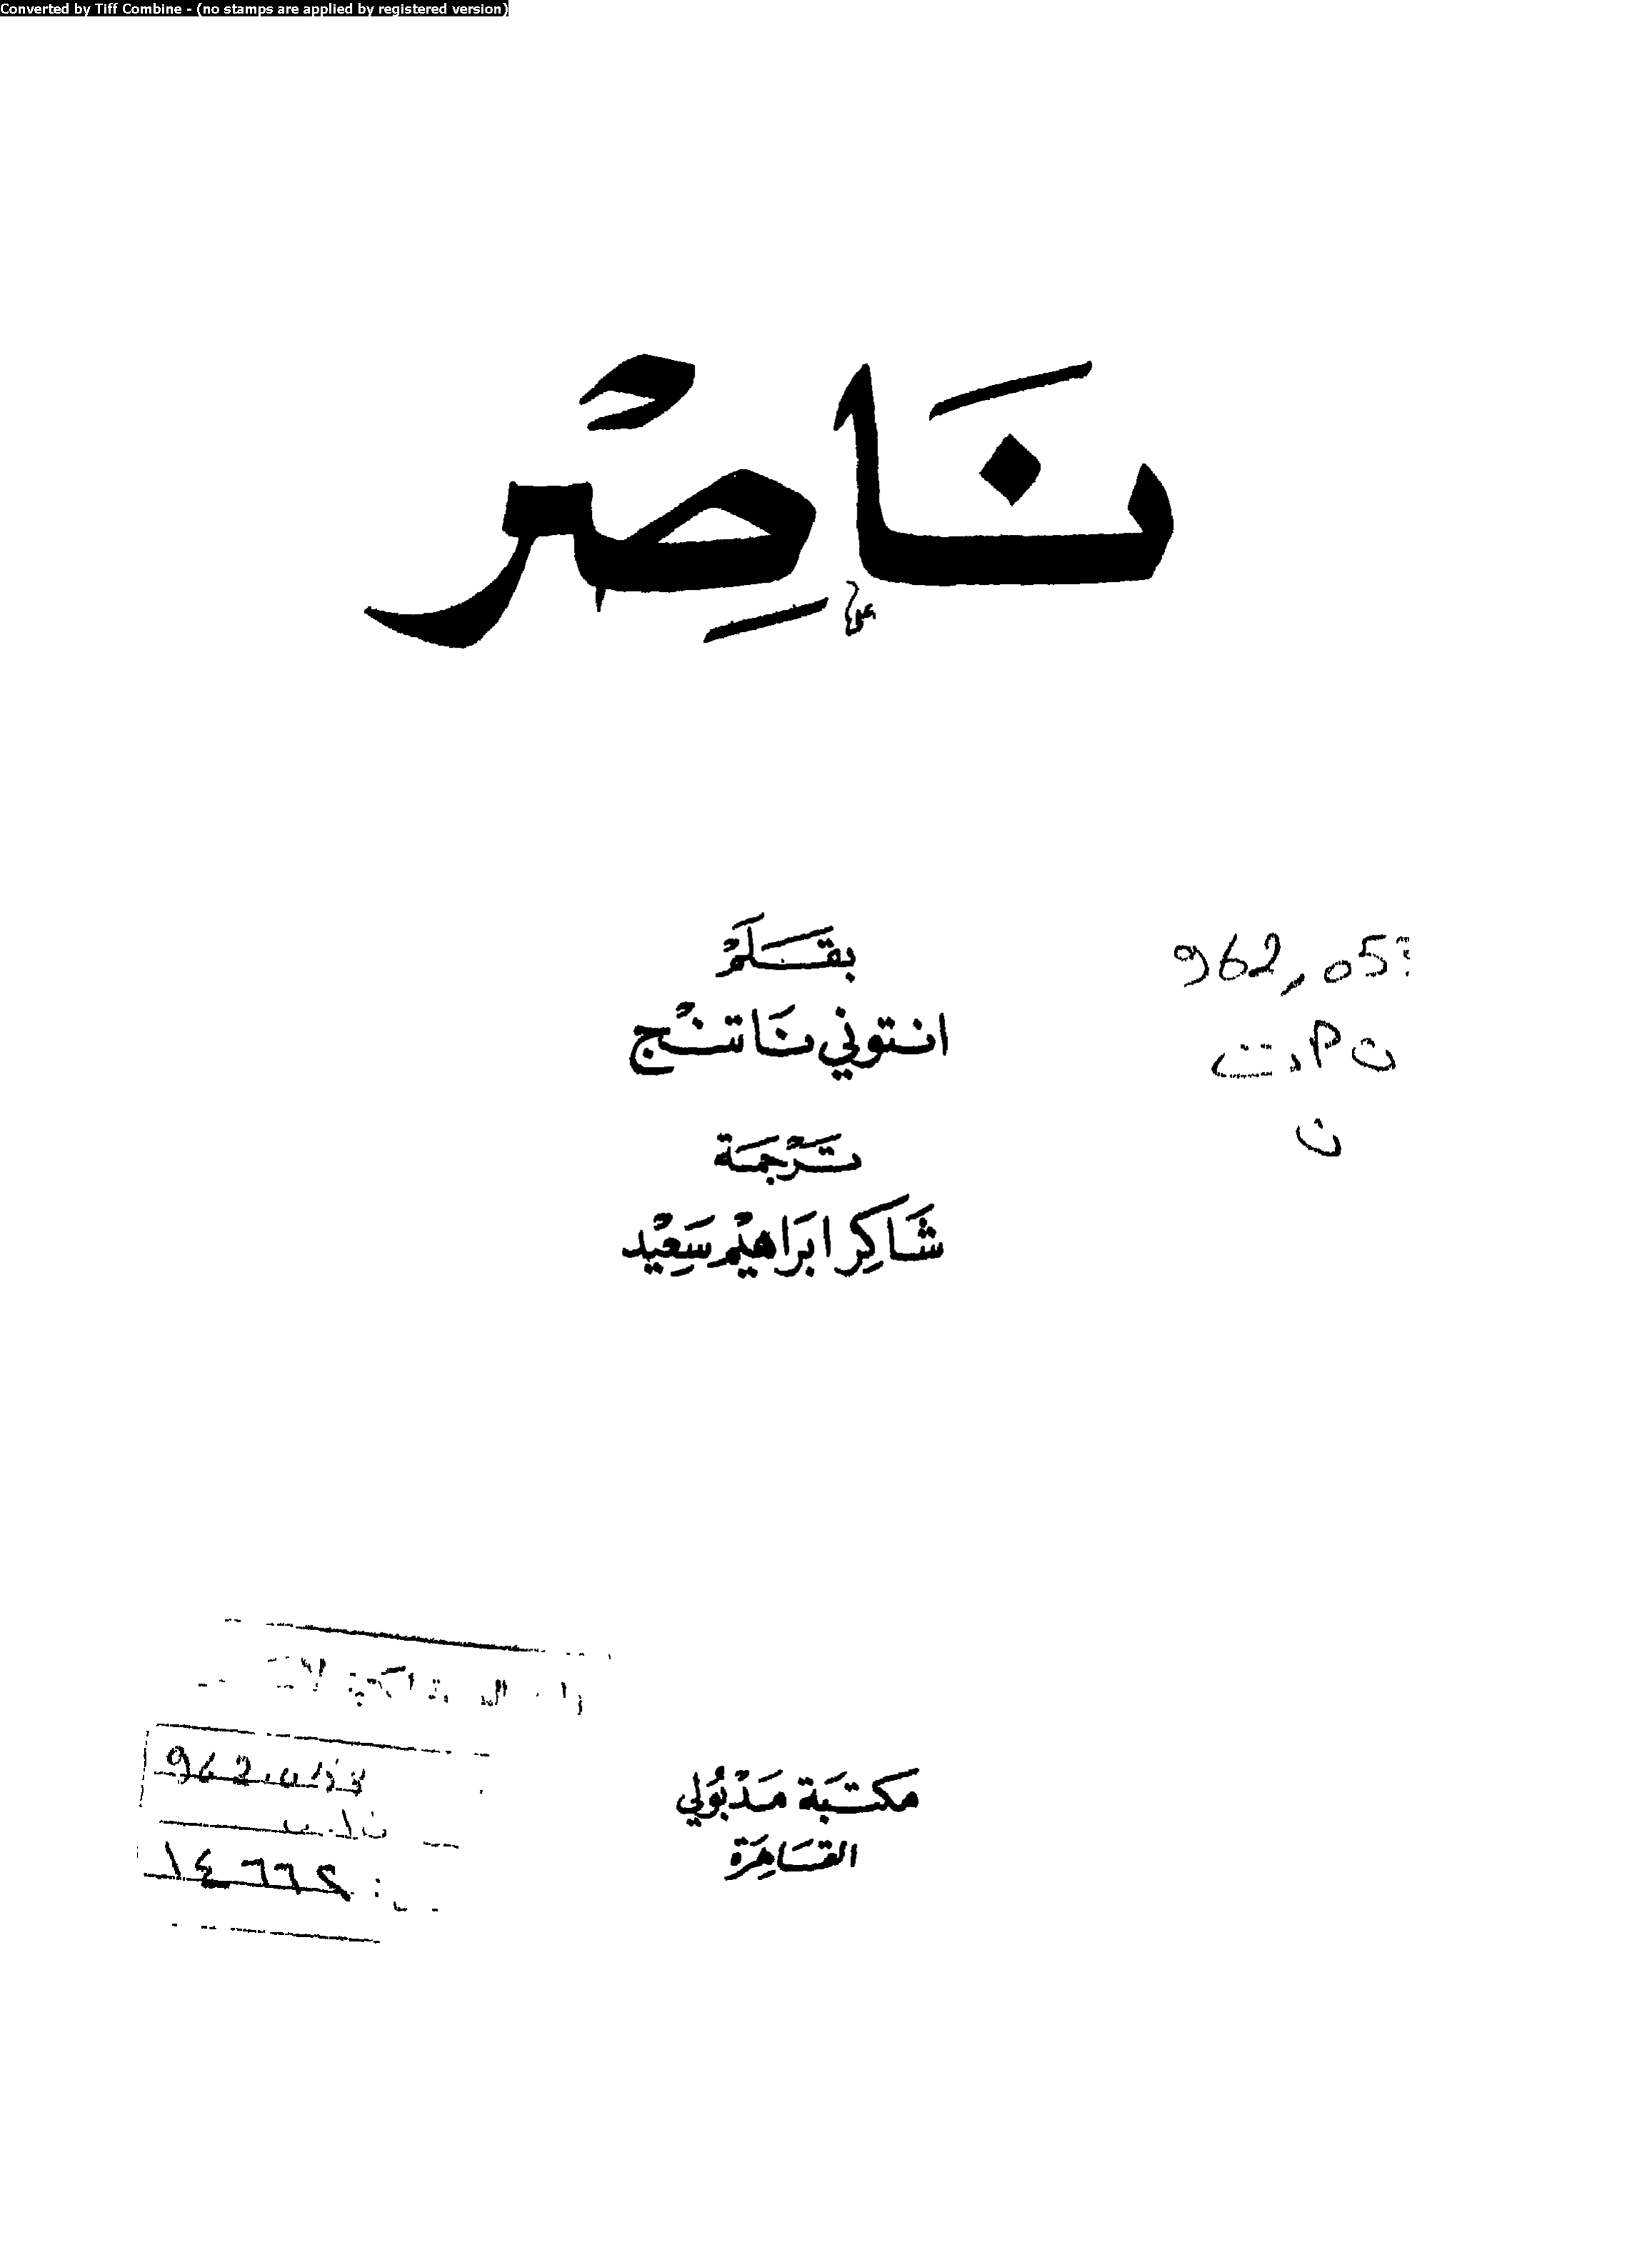 Converted by Tiff Combine - (no stamps are applied by registered version)
نَاصِرْ
بقَلَمْ
انتوني نَاتنْج
962,05
ن أ. ت
ن
تَرْجمَة
شَاكِر ابرَاهيْم سَعِيْد
962.053
١٤٦٦٢
مَكتبَة مَدْبُولي
القَاهِرَة